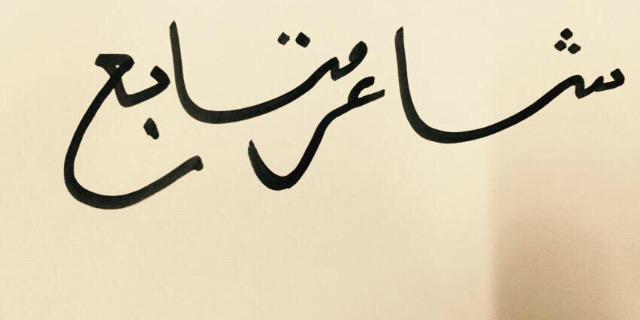 شاعر متابع